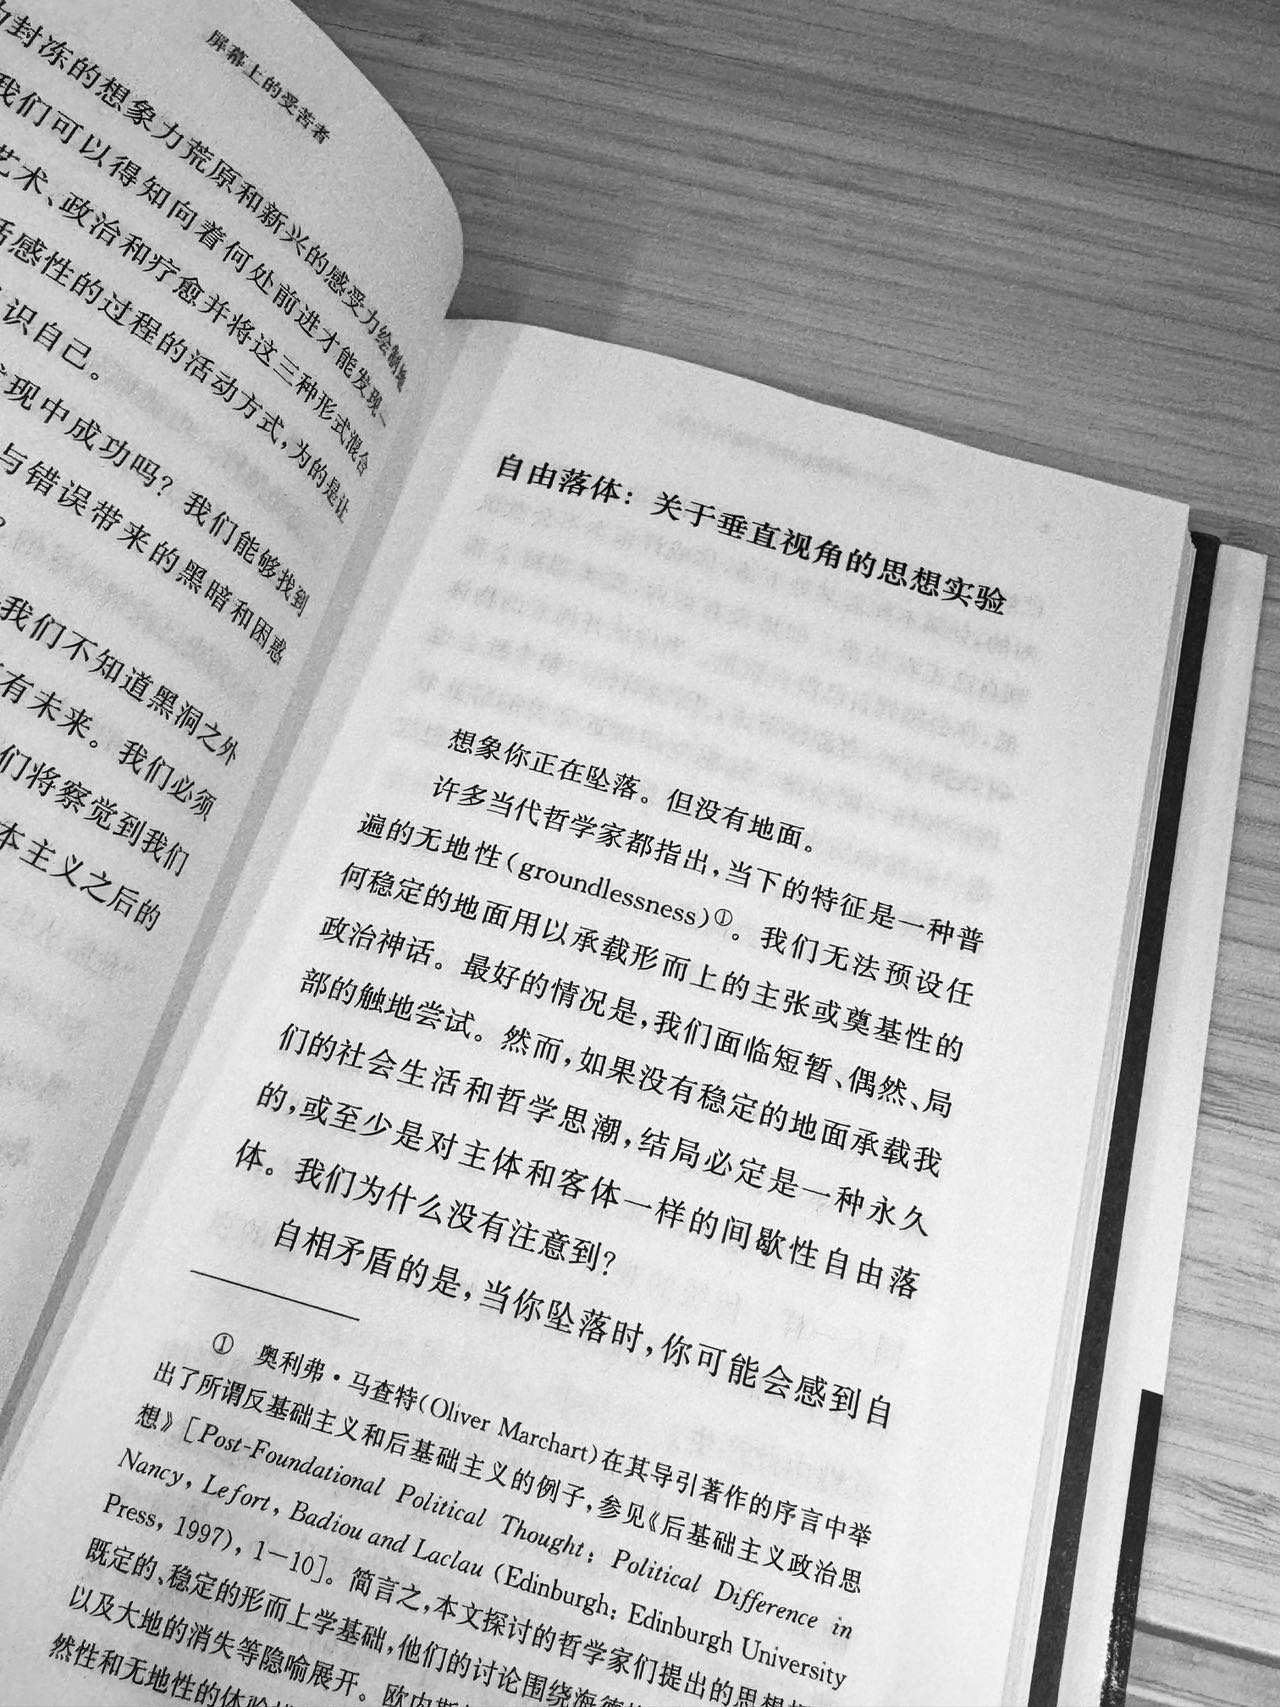 屏幕上的受苦者
封冻的想象力荒原和新兴的感受力绘制地
我们可以得知向着何处前进才能发现一
艺术、政治和疗愈并将这三种形式混合
活感性的过程的活动方式，为的是让
识自己。
发现中成功吗？我们能够找到
与错误带来的黑暗和困惑
？
我们不知道黑洞之外
有未来。我们必须
们将察觉到我们
本主义之后的
自由落体：关于垂直视角的思想实验
想象你正在坠落。但没有地面。
许多当代哲学家都指出，当下的特征是一种普
遍的无地性（groundlessness）①。我们无法预设任
何稳定的地面用以承载形而上的主张或奠基性的
政治神话。最好的情况是，我们面临短暂、偶然、局
部的触地尝试。然而，如果没有稳定的地面承载我
们的社会生活和哲学思潮，结局必定是一种永久
的，或至少是对主体和客体一样的间歇性自由落
体。我们为什么没有注意到？
自相矛盾的是，当你坠落时，你可能会感到自
① 奥利弗·马查特(Oliver Marchart)在其导引著作的序言中举
出了所谓反基础主义和后基础主义的例子，参见《后基础主义政治思
想》［Post-Foundational Political Thought: Political Difference in
Nancy, Lefort, Badiou and Laclau (Edinburgh: Edinburgh University
Press, 1997), 1—10］。简言之，本文探讨的哲学家们提出的思想
既定的、稳定的形而上学基础，他们的讨论围绕海德
以及大地的消失等隐喻展开。欧内斯
然性和无地性的体验